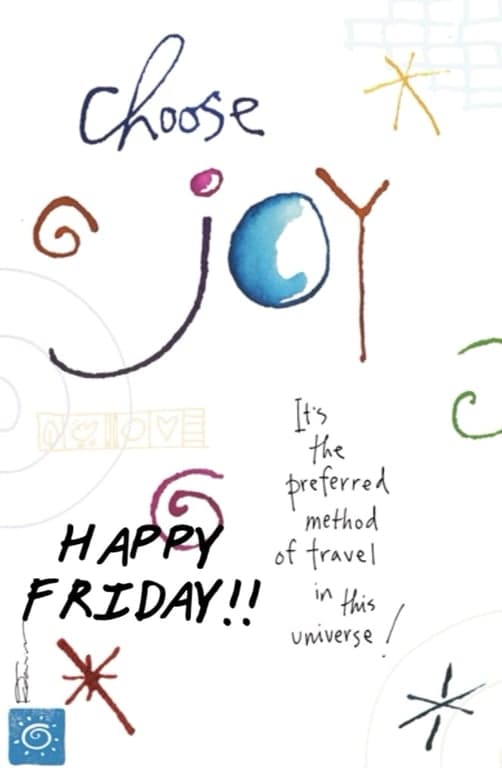 choose
joy
It's
the
preferred
method
of travel
in this
universe!
HAPPY
FRIDAY!!